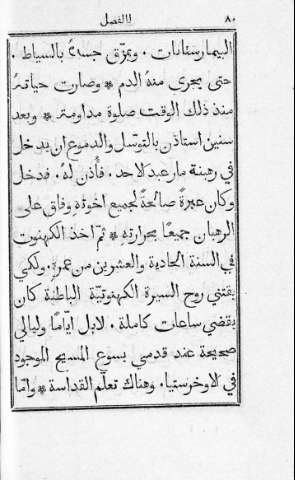 ٨٠ الفصل
البيمارستانات . ويمزّق جسدهُ بالسياط .
حتى يجري منهُ الدم * وصارت حياتهُ
منذ ذلك الوقت صلوة مداومة * وبعد
سنين استاذن بالتوسّل والدموع ان يدخل
في رهبنة مار عبد لاحد . فأذن لهُ . فدخل
وكان عبرةً صالحةً لجميع اخوتهِ وفاق على
الرهبان جميعًا بحرارتهِ * ثم اخذ الكهنوت
في السنة الحادية والعشرين من عمرهِ . ولكي
يقتني روح السيرة الكهنوتيّة الباطنة كان
يقضي ساعات كاملة . لابل ايّامًا وليالي
صحيحة عند قدمي يسوع المسيح الموجود
في لاوخرستيا . وهناك تعلّم القداسة * وامّا